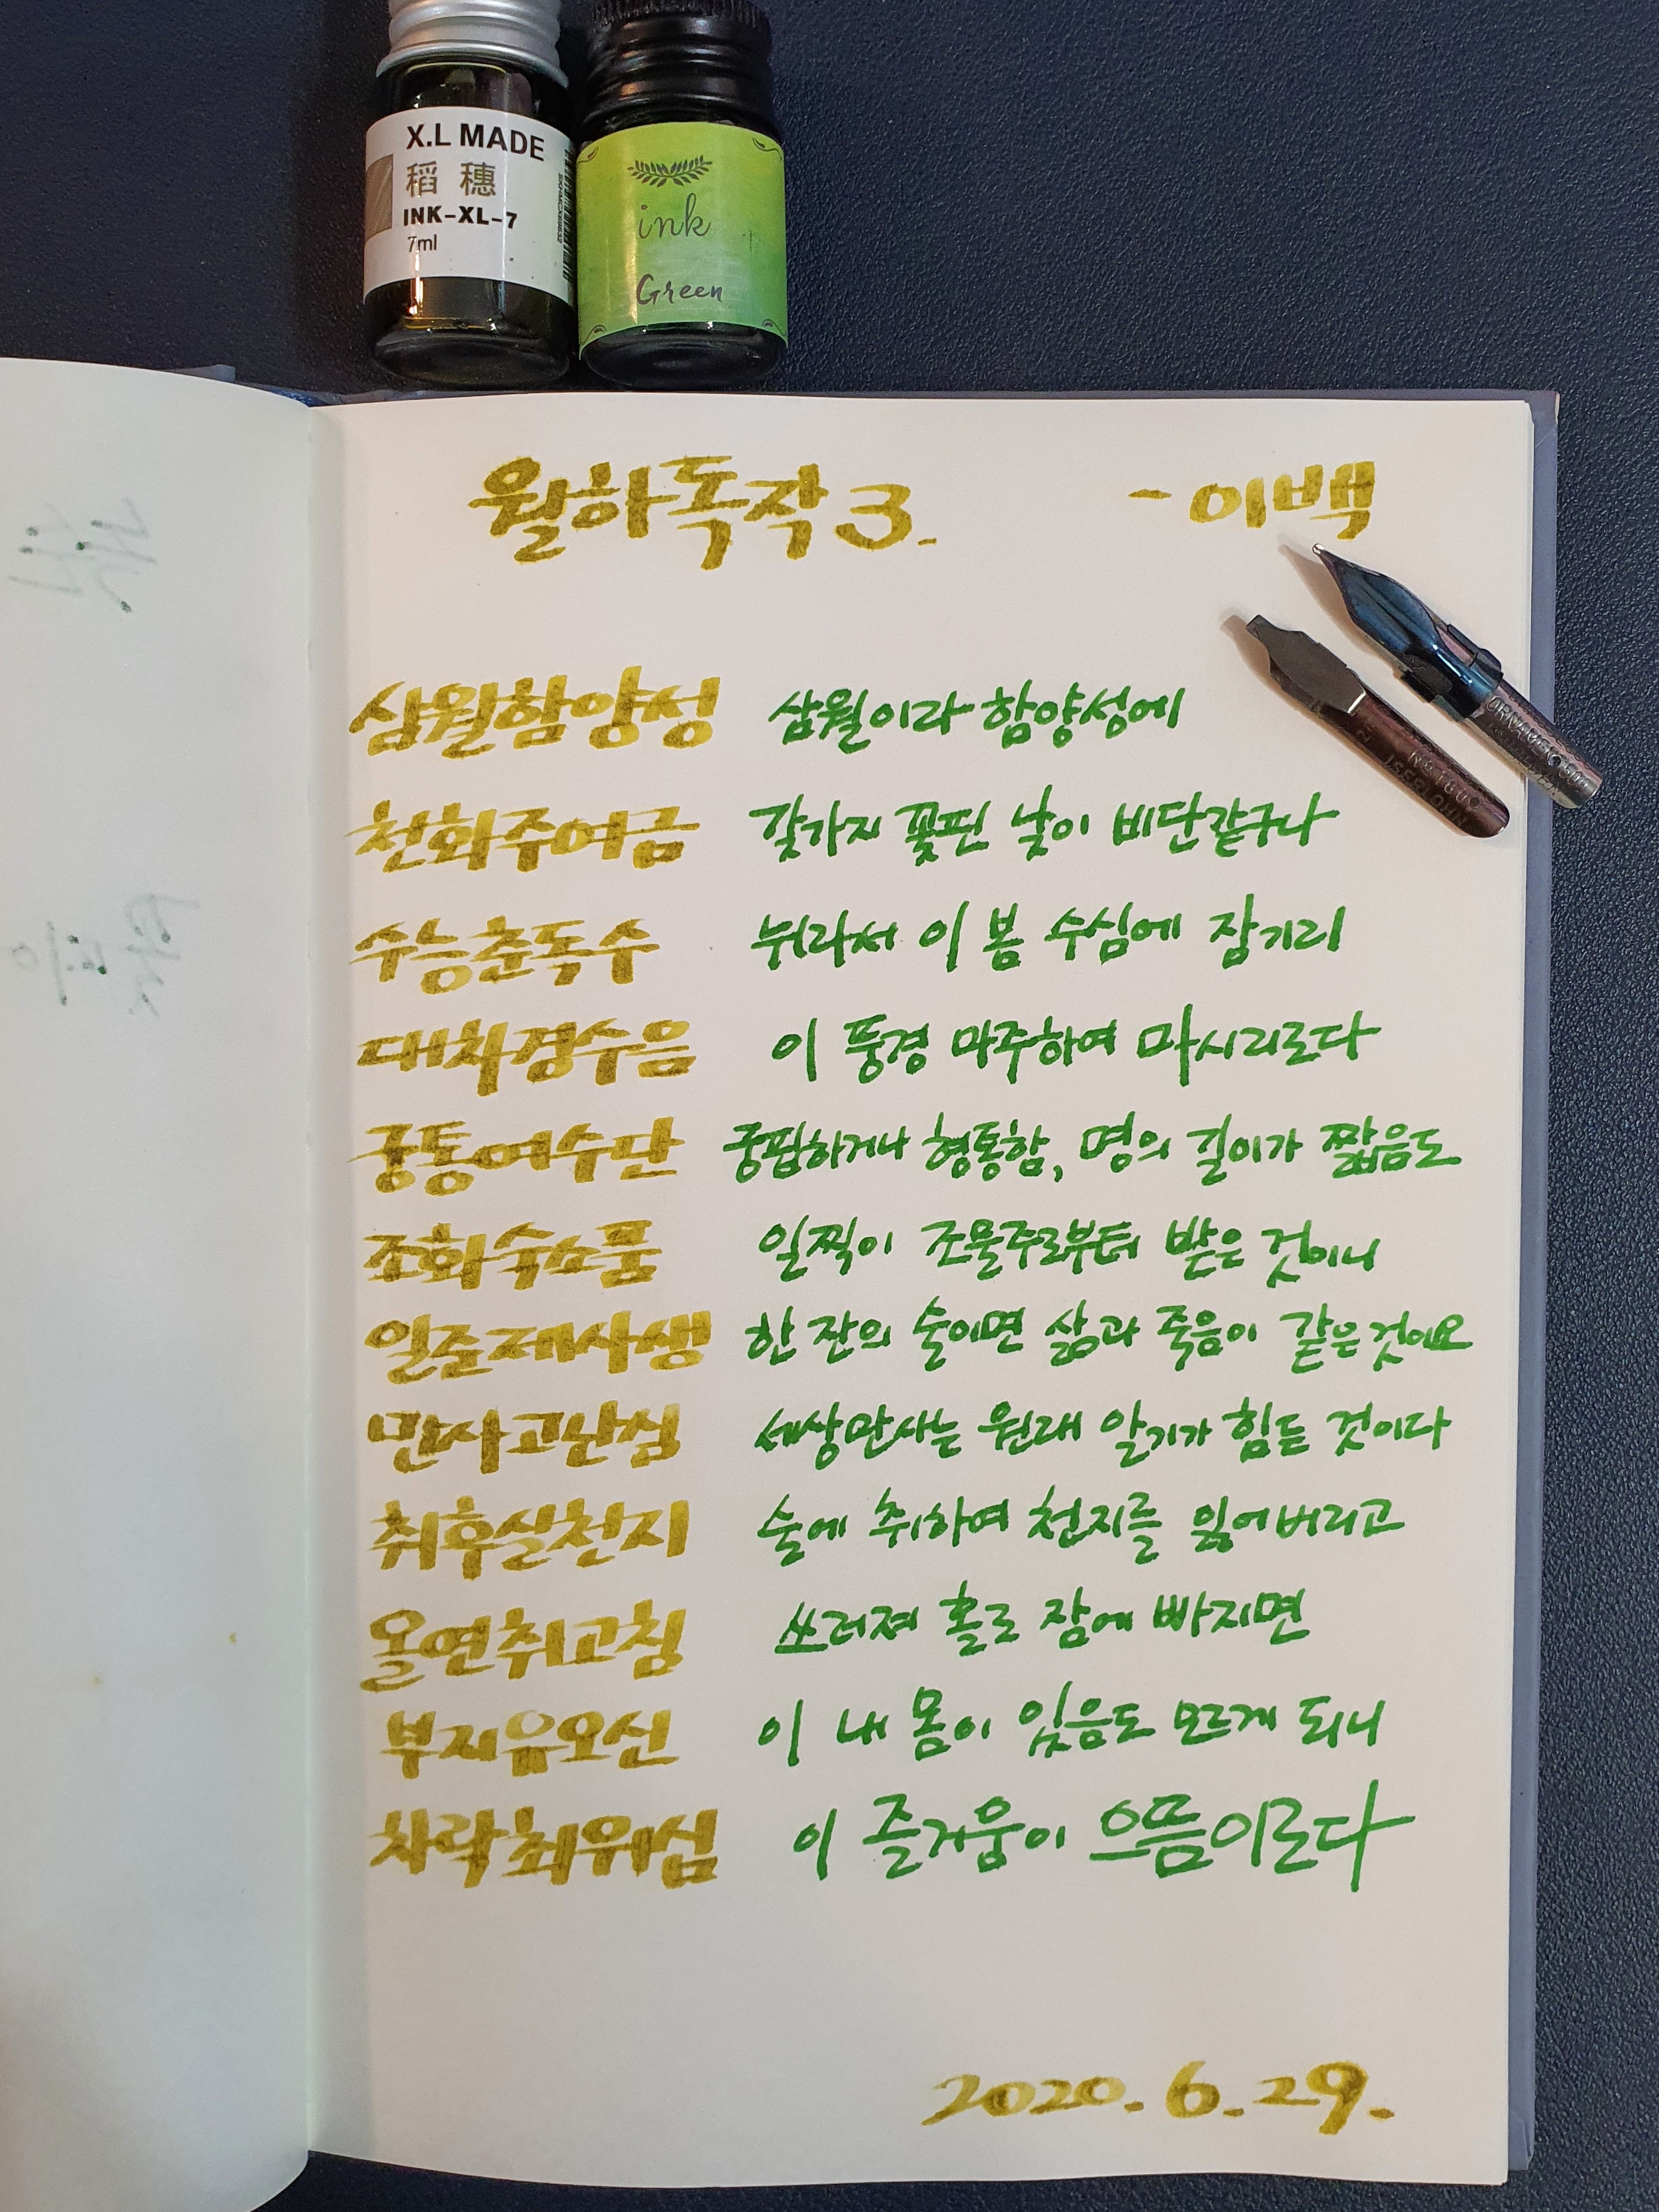 X.L MADE
稻穗
INK-XL-7
7ml
ink
Green
월하독작 3. - 이백
삼월함양성 삼월이라 함양성에
천화주여금 갖가지 꽃핀 낮이 비단같구나
수능춘독수 뉘라서 이 봄 수심에 잠기리
대차경수음 이 풍경 마주하여 마시리로다
궁통여수단 궁핍하거나 형통함, 명의 길이가 짧음도
조화숙소품 일찍이 조물주로부터 받은 것이니
일준제사생 한 잔의 술이면 삶과 죽음이 같은것이요
만사고난심 세상만사는 원래 알기가 힘든 것이다
취후실천지 술에 취하여 천지를 잃어버리고
올연취고침 쓰러져 홀로 잠에 빠지면
부지유오신 이 내 몸이 있음도 모르게 되니
차락최위심 이 즐거움이 으뜸이로다
2020.6.29.